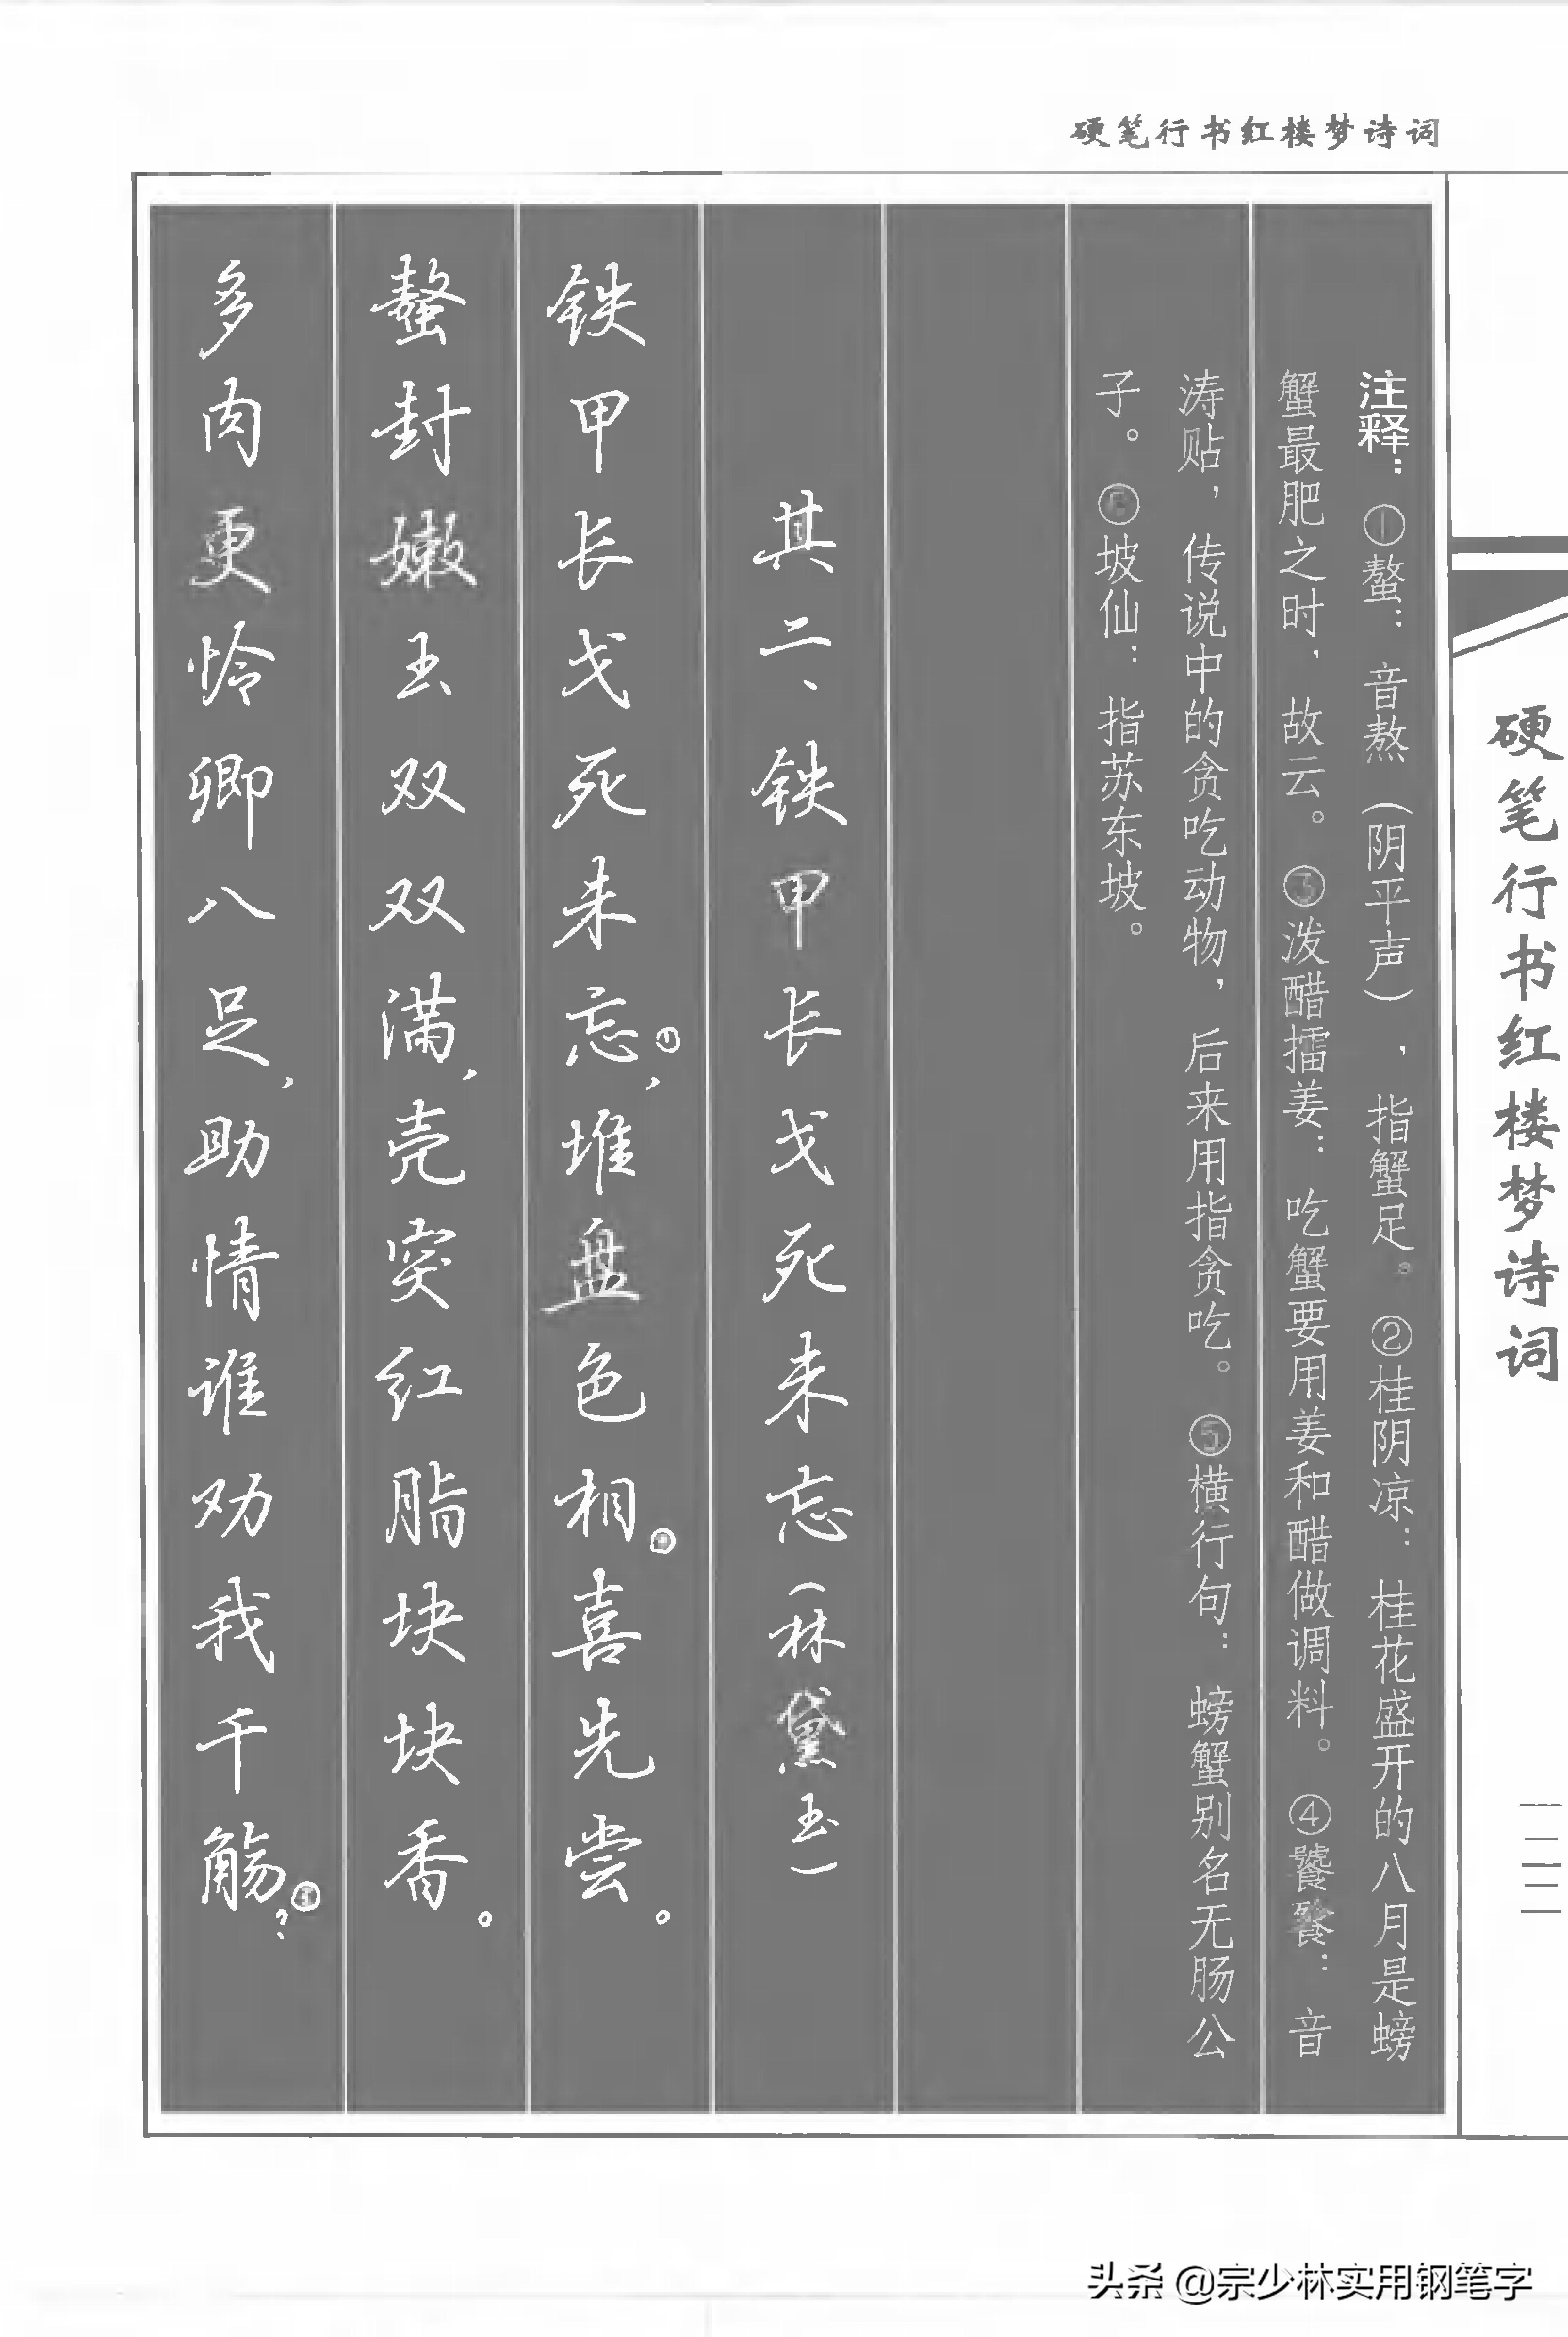 硬笔行书红楼梦诗词
硬笔行书红楼梦诗词
一一二
注释：①螯：音熬（阴平声），指蟹足。②桂阴凉：桂花盛开的八月是螃
蟹最肥之时，故云。③泼醋擂姜：吃蟹要用姜和醋做调料。④饕餮：音
涛贴，传说中的贪吃动物，后来用指贪吃。⑤横行句：螃蟹别名无肠公
子。⑥坡仙：指苏东坡。
其二、铁甲长戈死未忘（林黛玉）
铁甲长戈死未忘①，堆盘色相②喜先尝。
螯封嫩玉双双满，壳突红脂块块香。
多肉更怜卿八足，助情谁劝我千觞③？
头条 @宗少林实用钢笔字